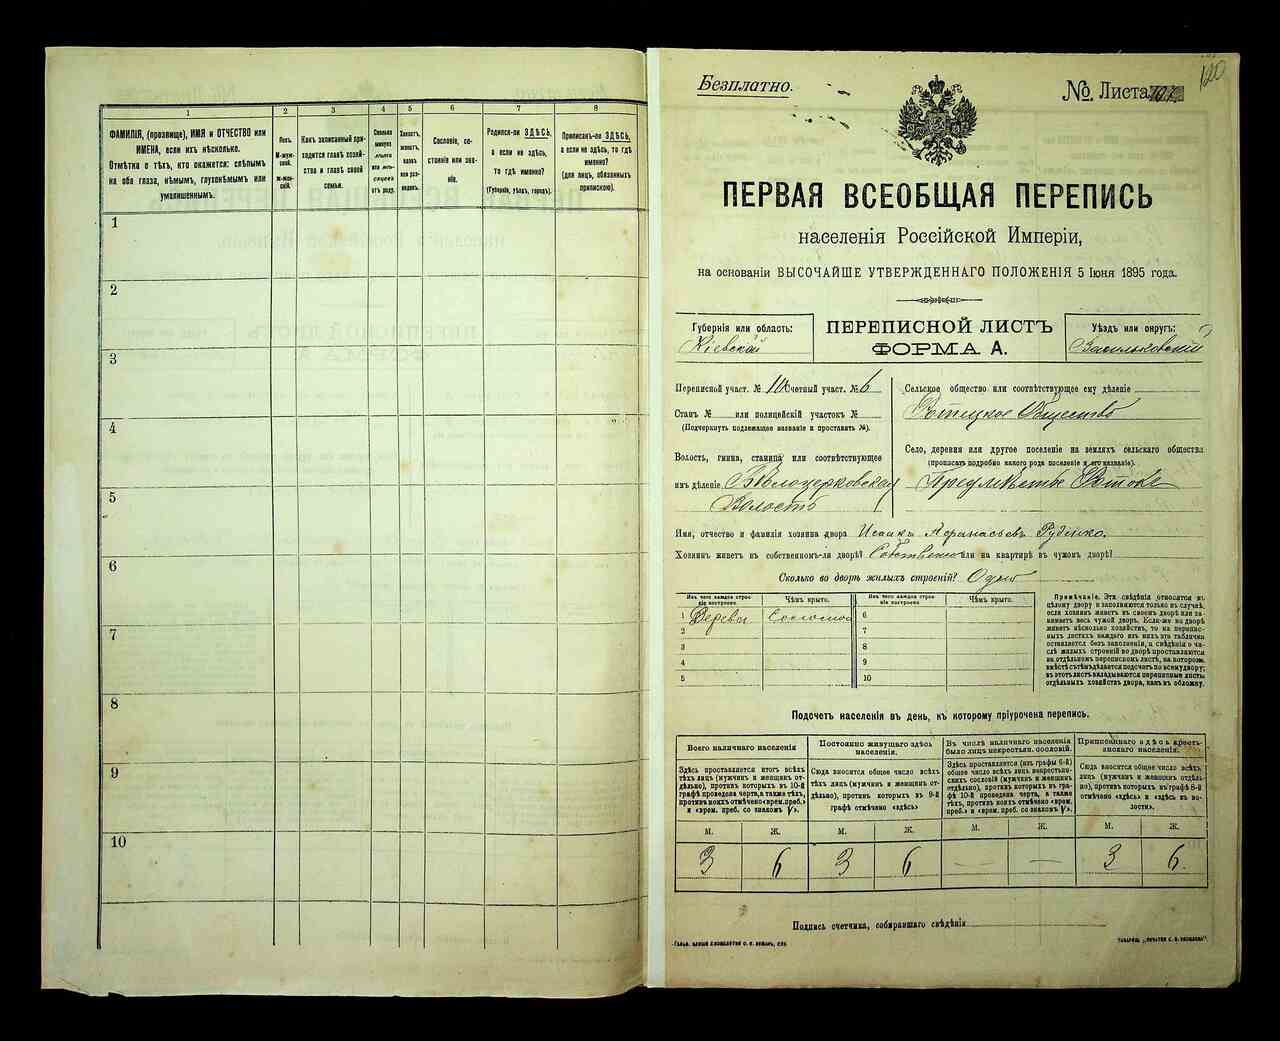 1 2 3 4 5 6 7 8
ФАМИЛІЯ, (прозвище), ИМЯ и ОТЧЕСТВО или
ИМЕНА, если ихъ нѣсколько.
Отмѣтка о тѣхъ, кто окажется: слѣпымъ
на оба глаза, нѣмымъ, глухонѣмымъ или
умалишеннымъ.
Полъ.
М-муж-
ской.
Ж-жен-
скій.
Какъ записанный при-
ходится главѣ хозяй-
ства и главѣ своей
семьи.
Сколько
минуло
лѣтъ
или мѣ-
сяцевъ
отъ роду.
Холостъ,
женатъ,
вдовъ
или раз-
веденъ.
Сословіе, со-
стояніе или зва-
ніе.
Родился-ли ЗДѢСЬ,
а если не здѣсь,
то гдѣ именно?
(Губернія, уѣздъ, городъ).
Приписанъ-ли ЗДѢСЬ,
а если не здѣсь, то гдѣ
именно?
(для лицъ, обязанныхъ
припискою).
1
2
3
4
5
6
7
8
9
10
120
Безплатно.
№ Листа
ПЕРВАЯ ВСЕОБЩАЯ ПЕРЕПИСЬ
населенія Россійской Имперіи,
на основаніи ВЫСОЧАЙШЕ УТВЕРЖДЕННАГО ПОЛОЖЕНІЯ 5 Іюня 1895 года.
Губернія или область:
Кіевской
ПЕРЕПИСНОЙ ЛИСТЪ
ФОРМА А.
Уѣздъ или округъ:
Васильковскій
Переписной участ. № 10 Счетный участ. № 6
Станъ № или полицейскій участокъ №
(Подчеркнуть подлежащее названіе и проставить №).
Волость, гмина, станица или соотвѣтствующее
имъ дѣленіе Бѣлоцерковская
Волость
Сельское общество или соотвѣтствующее ему дѣленіе
Общество
Село, деревня или другое поселеніе на земляхъ сельскаго общества
(прописать подробно какого рода поселеніе и его названіе).
Предмѣстье
Имя, отчество и фамилія хозяина двора Исаакъ Афанасьевъ Руденко.
Хозяинъ живетъ въ собственномъ-ли дворѣ? Собственно или на квартирѣ въ чужомъ дворѣ?
Сколько во дворѣ жилыхъ строеній? Одно
Изъ чего каждое строе-
ніе построено.
Чѣмъ крыто.
Изъ чего каждое строе-
ніе построено.
Чѣмъ крыто.
1 Дерева Соломой 6
2 7
3 8
4 9
5 10
Примѣчаніе. Эти свѣдѣнія относятся къ
цѣлому двору и заполняются только въ случаѣ,
если хозяинъ живетъ въ своемъ дворѣ или за-
нимаетъ весь чужой дворъ. Если-же во дворѣ
живетъ нѣсколько хозяйствъ, то на перепис-
ныхъ листахъ каждаго изъ нихъ эта табличка
оставляется безъ заполненія, а свѣдѣнія о чи-
слѣ жилыхъ строеній во дворѣ проставляются
на отдѣльномъ переписномъ листѣ, на которомъ
вмѣстѣ съ тѣмъ дѣлается подсчетъ по всему двору;
въ этотъ листъ вкладываются переписные листы
отдѣльныхъ хозяйствъ двора, какъ въ обложку.
Подсчетъ населенія въ день, къ которому пріурочена перепись.
Всего наличнаго населенія
Постоянно живущаго здѣсь
населенія.
Въ числѣ наличнаго населенія
было лицъ некрестьян. сословій.
Приписаннаго здѣсь кресть-
янскаго населенія.
Здѣсь проставляется итогъ всѣхъ
тѣхъ лицъ (мужчинъ и женщинъ от-
дѣльно), противъ которыхъ въ 10-й
графѣ проведена черта, а также тѣхъ,
противъ коихъ отмѣчено «врем. преб.»
и «врем. преб. со знакомъ V».
Сюда вносится общее число всѣхъ
тѣхъ лицъ (мужчинъ и женщинъ от-
дѣльно), противъ которыхъ въ 9-й
графѣ отмѣчено «здѣсь»
Здѣсь проставляется (изъ графы 6-й)
общее число всѣхъ лицъ некрестьян-
скихъ сословій (мужчинъ и женщинъ
отдѣльно), противъ которыхъ въ гра-
фѣ 10-й проведена черта, а также
тѣхъ, противъ коихъ отмѣчено «врем.
преб.» и «врем. преб. со знакомъ V».
Сюда вносится общее число всѣхъ
лицъ (мужчинъ и женщинъ отдѣль-
но), противъ которыхъ въ графѣ 8-й
отмѣчено «здѣсь» и «здѣсь въ во-
лости».
М. Ж. М. Ж. М. Ж. М. Ж.
3 6 3 6 — — 3 6.
Подпись счетчика, собиравшаго свѣдѣнія